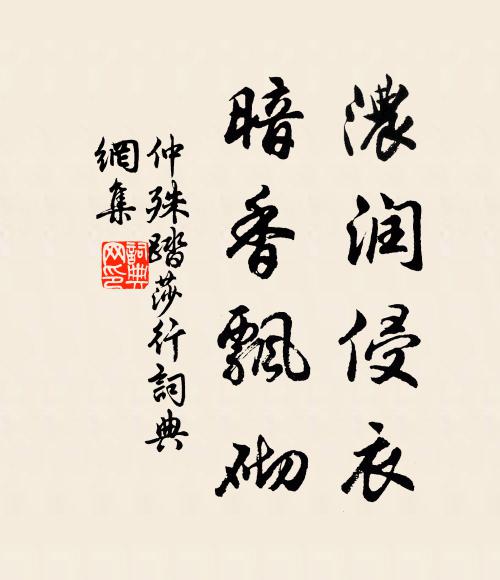 濃润侵衣
暗香飄砌
仲殊踏莎行詞典
網集
詞典网印